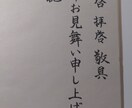 啓 拝啓 敬具
お見舞い申し上げ